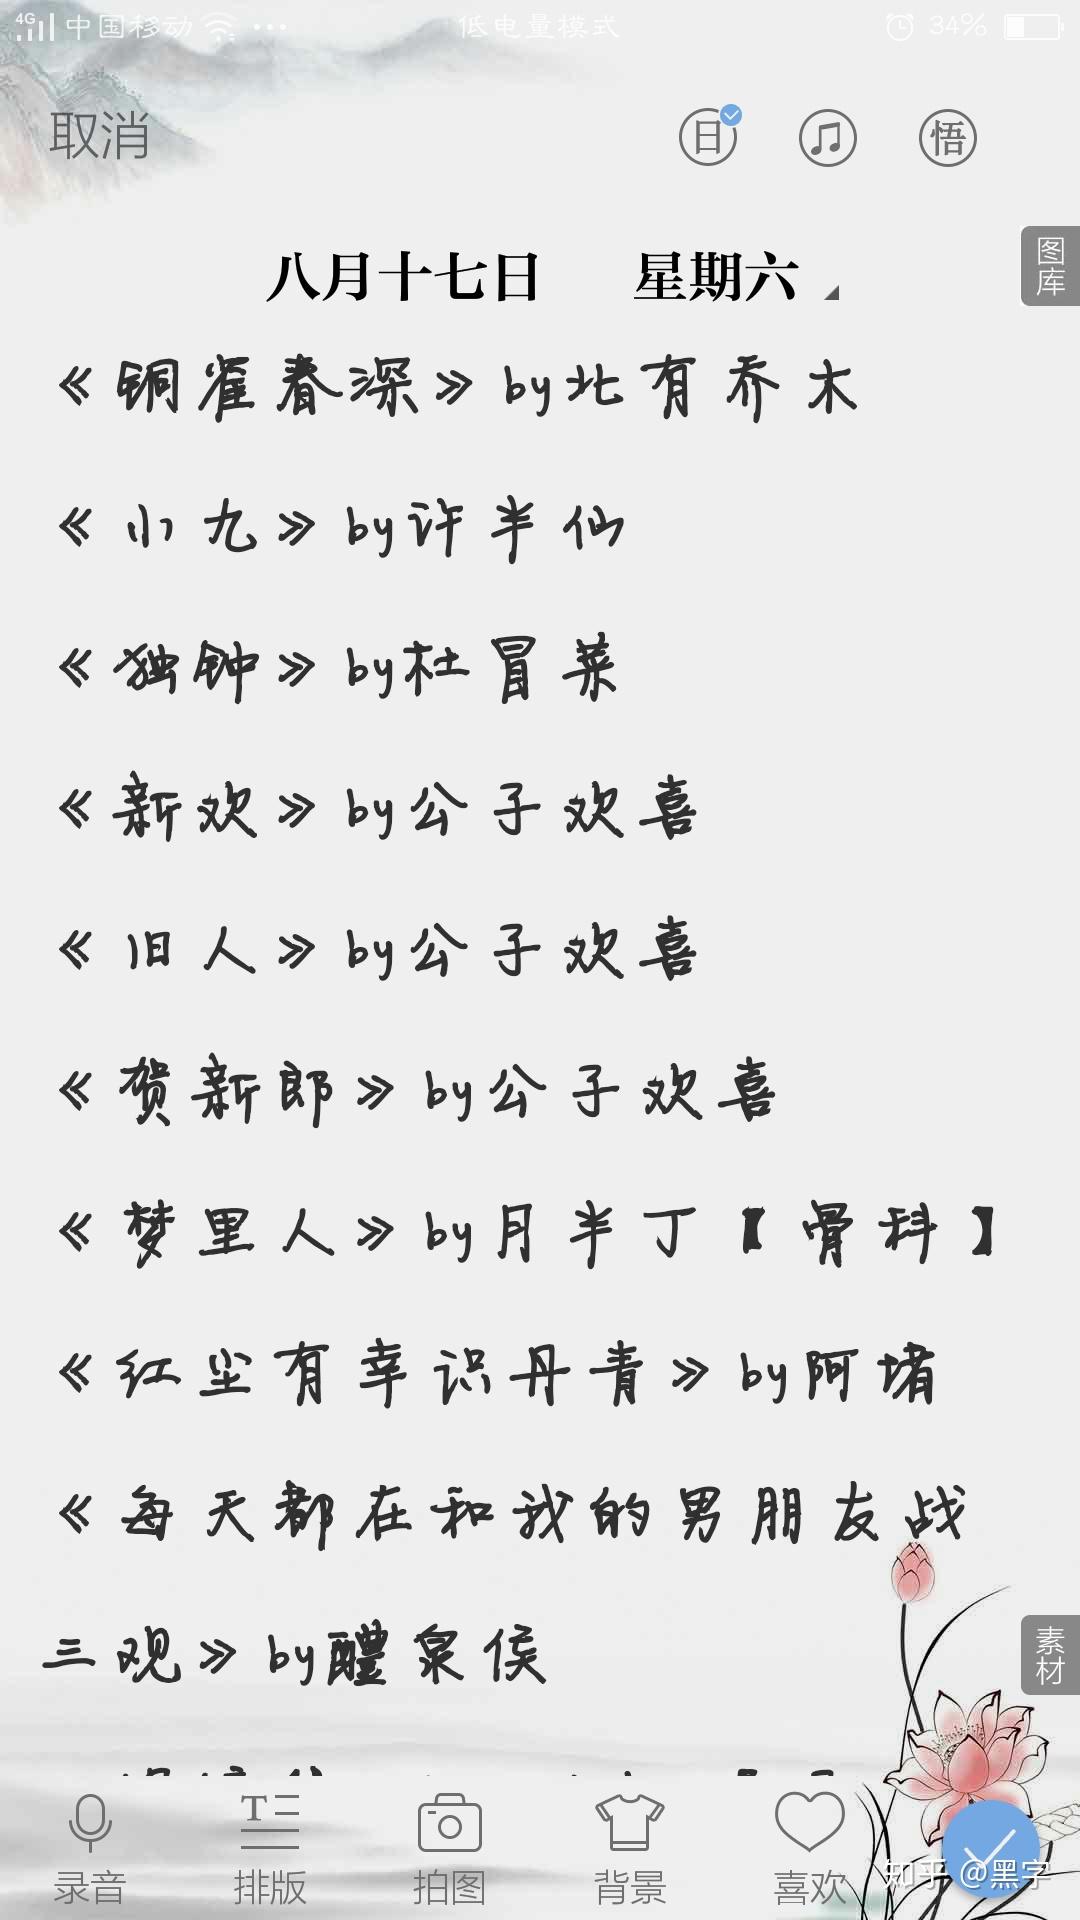 4G 中国移动 ··· 低电量模式 34%
取消 日 悟
图库
八月十七日 星期六
《铜雀春深》by北有乔木
《小九》by许半仙
《独钟》by杜冒菜
《新欢》by公子欢喜
《旧人》by公子欢喜
《贺新郎》by公子欢喜
《梦里人》by月半丁【骨科】
《红尘有幸识丹青》by阿堵
《每天都在和我的男朋友战
三观》by醴泉侯
素材
录音 排版 拍图 背景 喜欢
知乎 @黑字